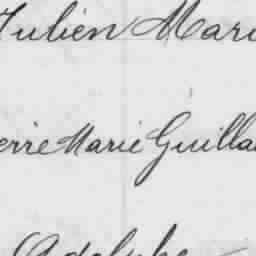 Julien Mari
erre Marie Guilla
Adolphe